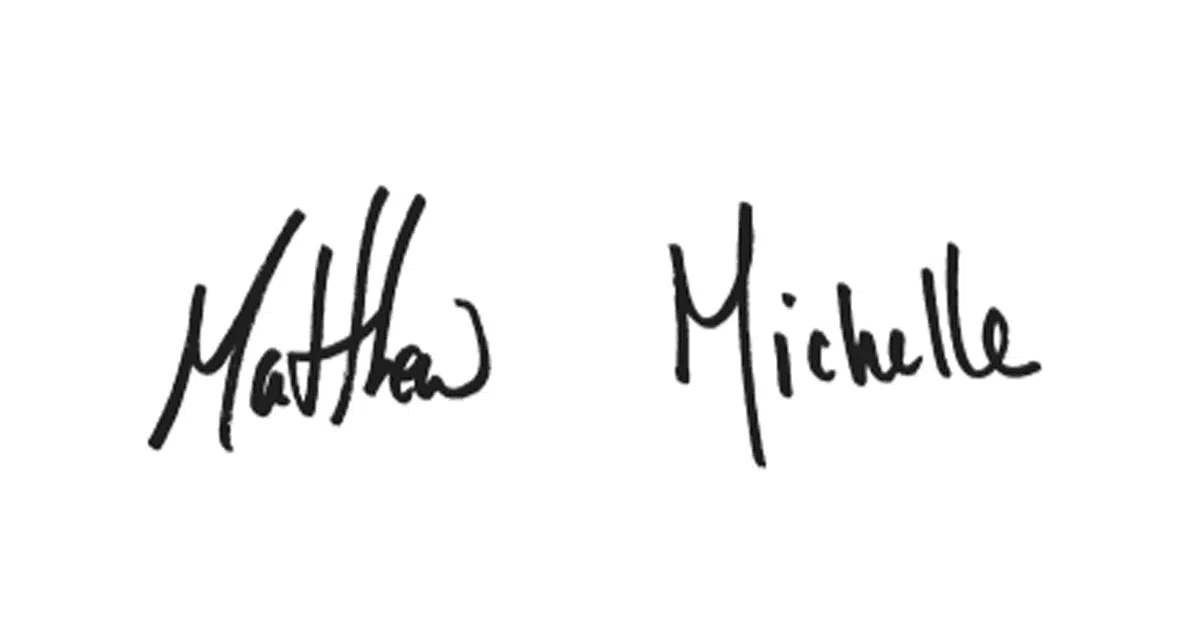 Matthew Michelle